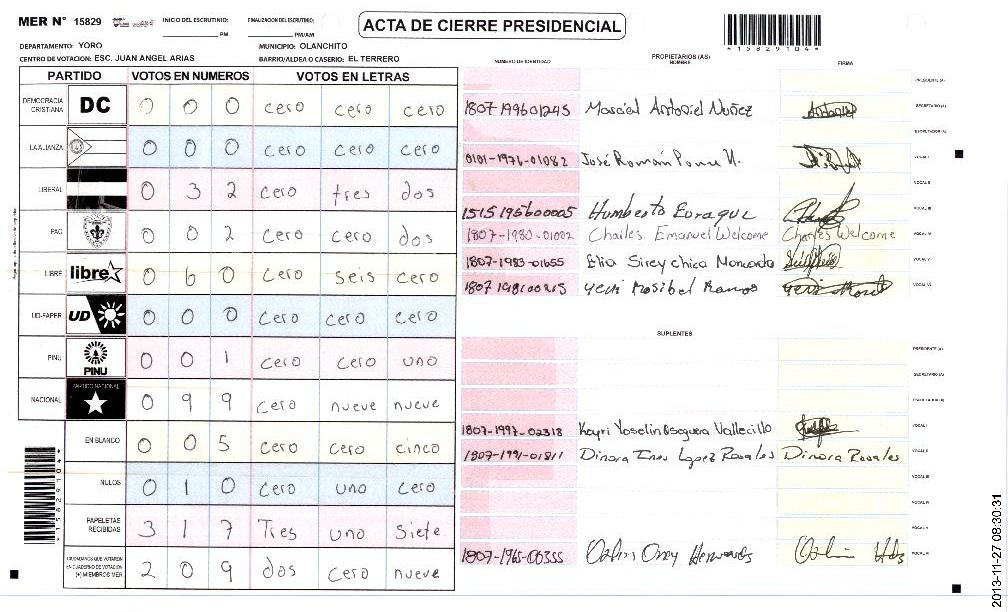 MER N° 15829
INICIO DEL ESCRUTINIO: PM
FINALIZACION DEL ESCRUTINIO: PM/AM
ACTA DE CIERRE PRESIDENCIAL
*15829104*
DEPARTAMENTO: YORO
MUNICIPIO: OLANCHITO
CENTRO DE VOTACION: ESC. JUAN ANGEL ARIAS
BARRIO/ALDEA O CASERIO: EL TERRERO
PARTIDO VOTOS EN NUMEROS VOTOS EN LETRAS
DEMOCRACIA CRISTIANA DC 0 0 0 cero cero cero
LA ALIANZA 0 0 0 cero cero cero
LIBERAL 0 3 2 cero tres dos
PAC 0 0 2 cero cero dos
LIBRE libre 0 6 0 cero seis cero
UD-FAPER UD 0 0 0 cero cero cero
PINU PINU 0 0 1 cero cero uno
NACIONAL PARTIDO NACIONAL 0 9 9 cero nueve nueve
EN BLANCO 0 0 5 cero cero cinco
NULOS 0 1 0 cero uno cero
PAPELETAS RECIBIDAS 3 1 7 Tres uno siete
CIUDADANOS QUE VOTARON EN CUADERNO DE VOTACION (+) MIEMBROS MER 2 0 9 dos cero nueve
NUMERO DE IDENTIDAD
PROPIETARIOS (AS)
NOMBRE
FIRMA
PRESIDENTE (A)
1807-199601245 Antoniel Nuñez SECRETARIO (A)
ESCRUTADOR (A)
0101-1976-01082 José Román VOCAL I
VOCAL II
1515195600005 Humberto Euraque VOCAL III
1807-1980-01002 Charles Emanuel Welcome Charles Welcome VOCAL IV
1807-1983-01655 Elia VOCAL V
Yeni Mosibel Ramos VOCAL VI
SUPLENTES
PRESIDENTE (A)
SECRETARIO (A)
ESCRUTADOR (A)
1807-1997-02318 Vallecillo VOCAL I
1807-1991-01811 Dinora Ines Lopez Rosales Dinora Rosales VOCAL II
VOCAL III
VOCAL IV
VOCAL V
1807-1965-00355 VOCAL VI
2013-11-27 08:30:31